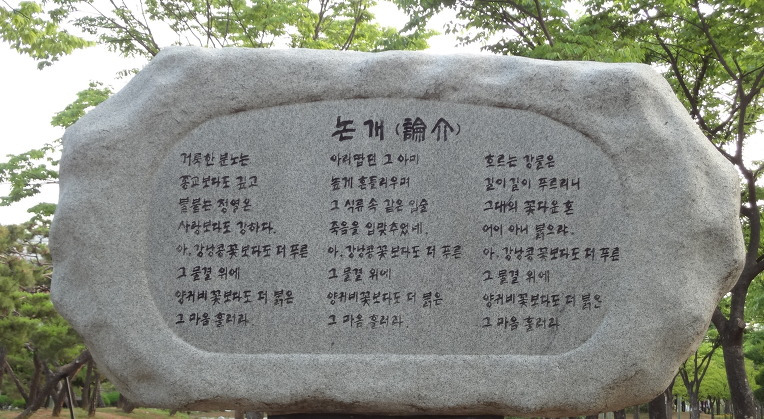 논개(論介)
거룩한 분노는
종교보다도 깊고
불붙는 정열은
사랑보다도 강하다.
아, 강낭콩꽃보다도 더 푸른
그 물결 위에
양귀비꽃보다도 더 붉은
그 마음 흘러라.
아리땁던 그 아미
높게 흔들리우며
그 석류 속 같은 입술
죽음을 입맞추었네.
아, 강낭콩꽃보다도 더 푸른
그 물결 위에
양귀비꽃보다도 더 붉은
그 마음 흘러라.
흐르는 강물은
길이길이 푸르리니
그대의 꽃다운 혼
어이 아니 붉으랴.
아, 강낭콩꽃보다도 더 푸른
그 물결 위에
양귀비꽃보다도 더 붉은
그 마음 흘러라